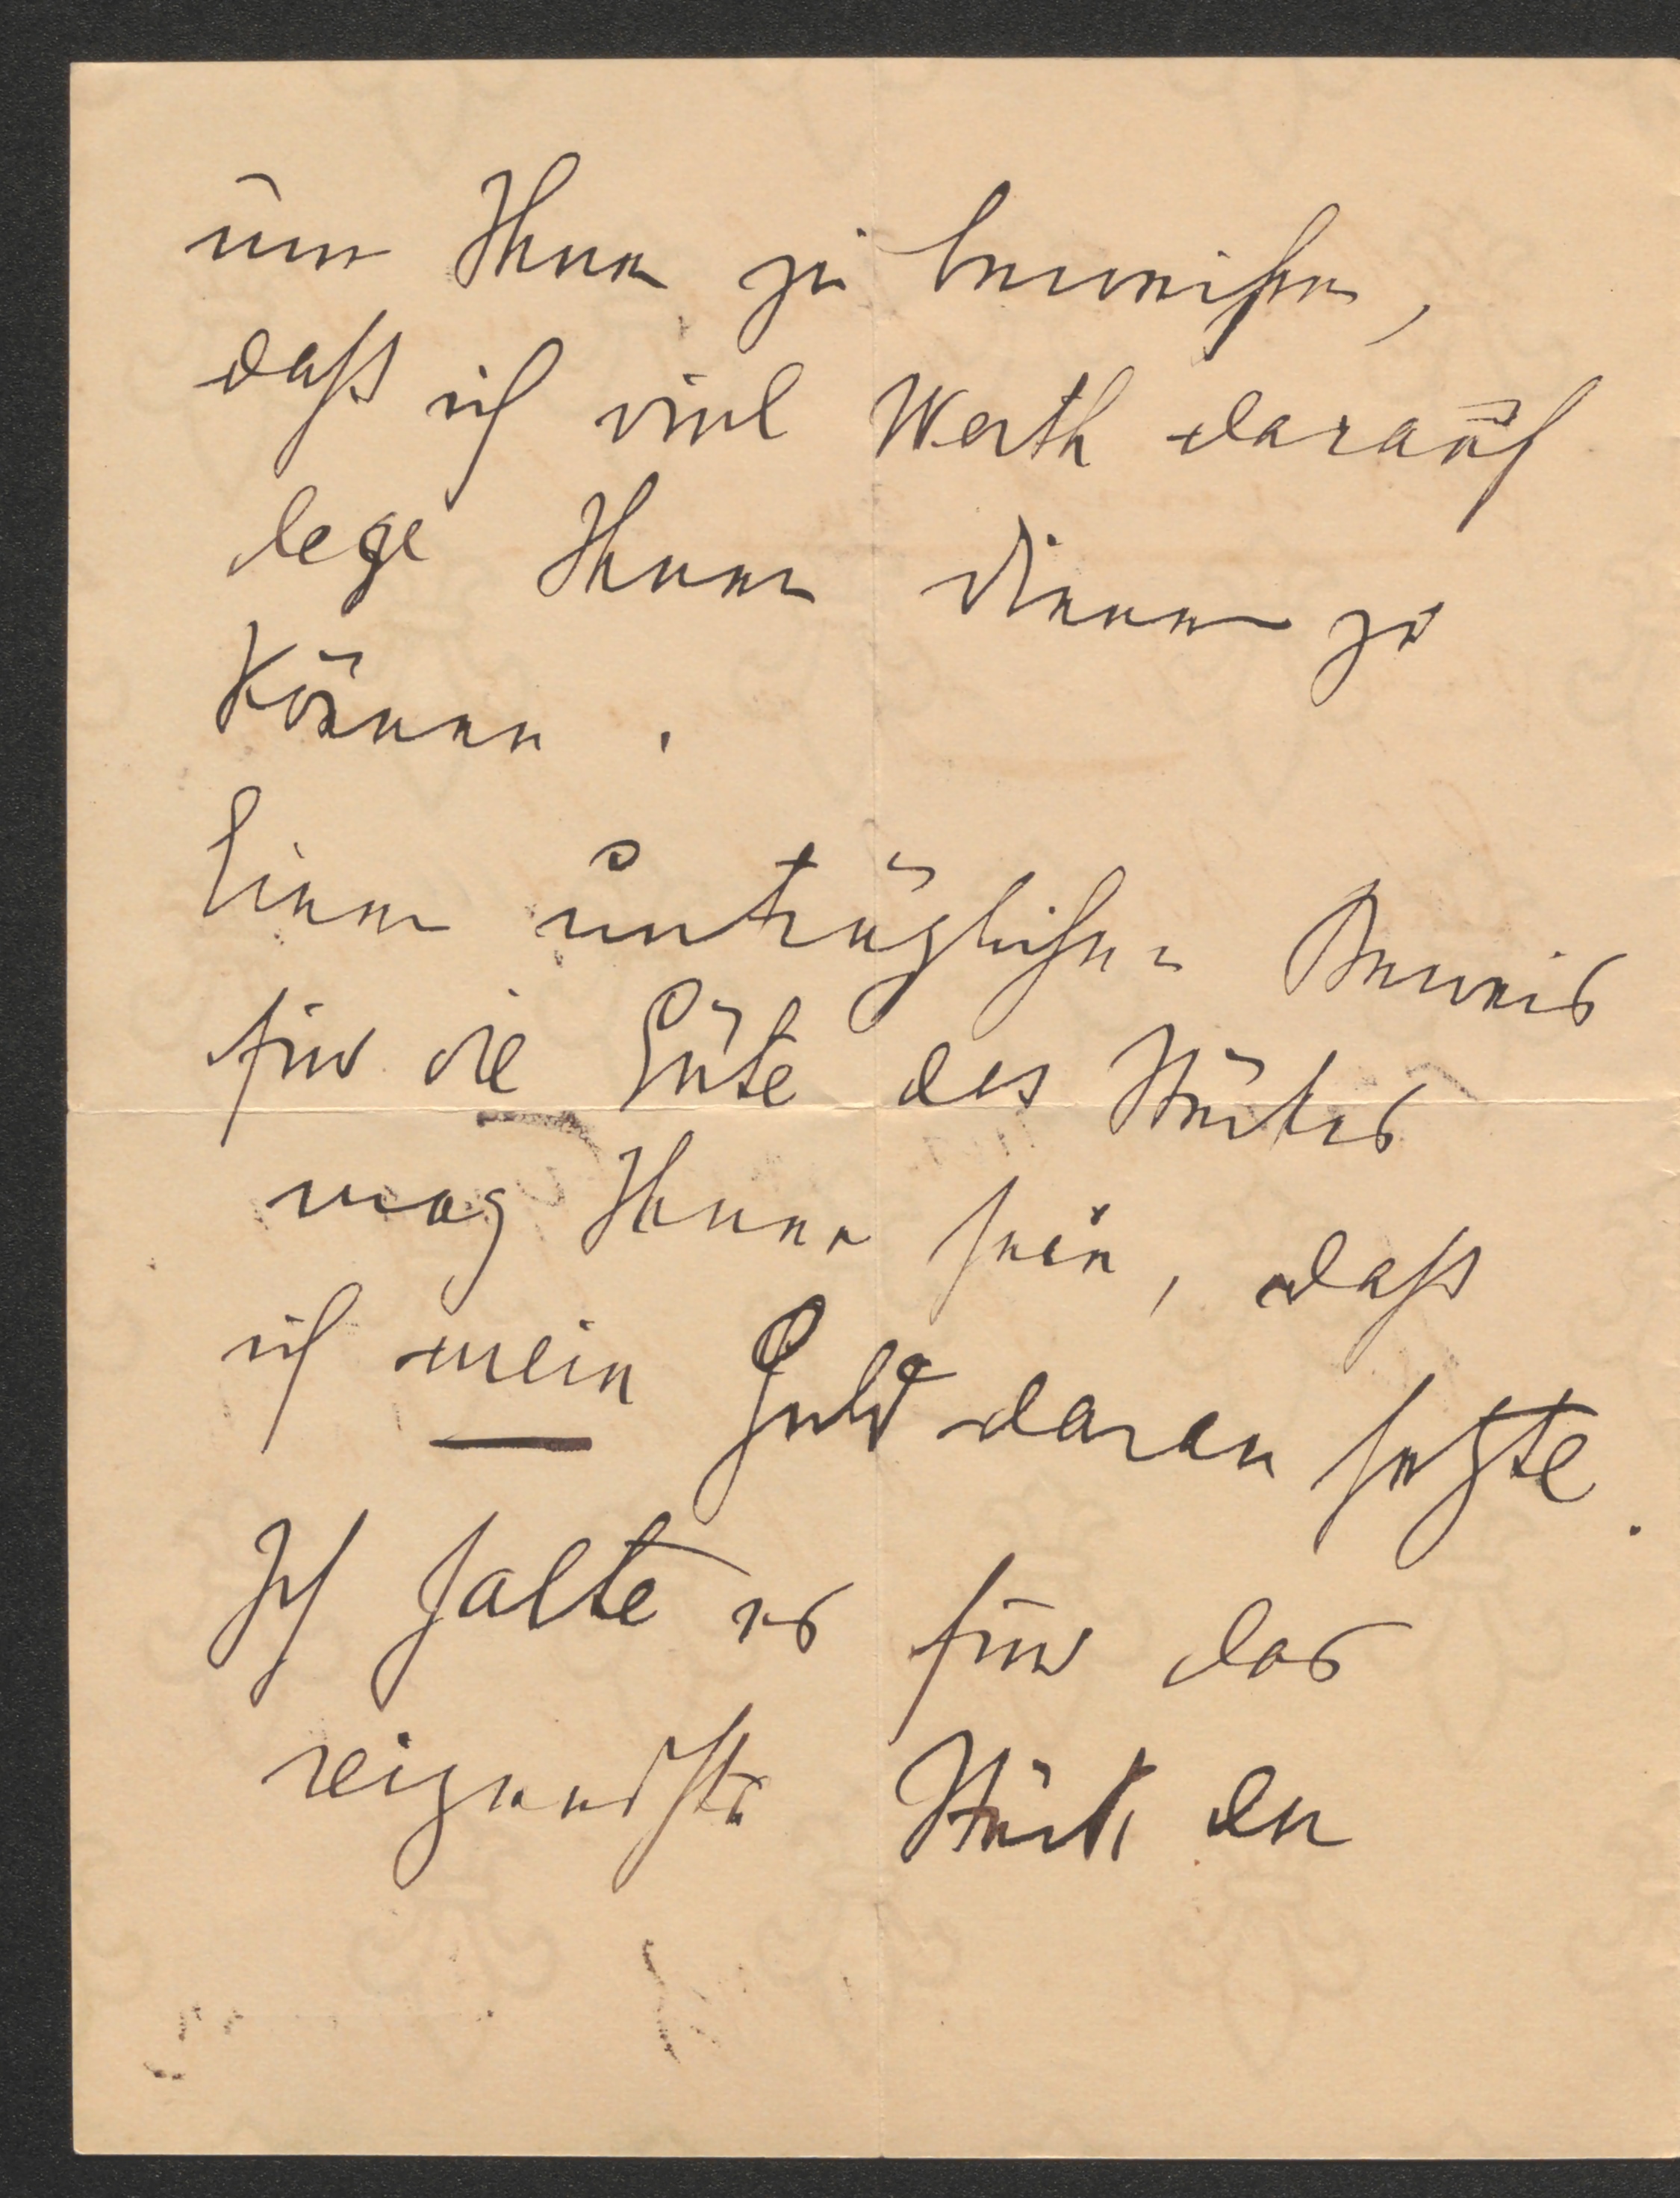 um Ihnen zu beweisen,
daß ich viel Werth darauf
lege Ihnen dienen zu
können.
Einen untrüglichen Beweis
für die Güte des Stückes
mag Ihnen sein, daß
ich mein Geld daran setzte.
Ich halte es für das
reizendste Stück der